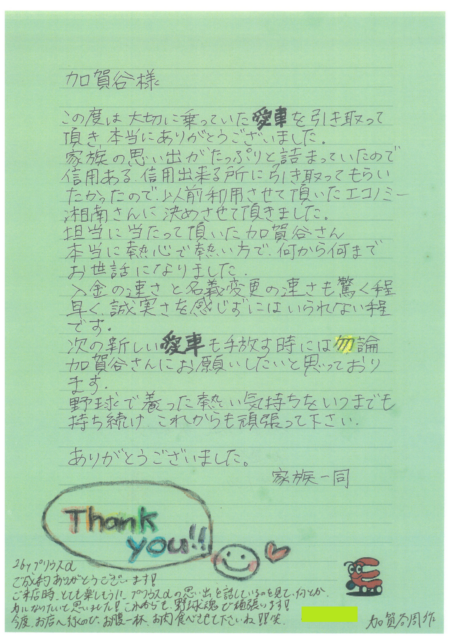 加賀谷様
この度は大切に乗っていた愛車を引き取って
頂き、本当にありがとうございました。
家族の思い出がたっぷりと詰まっていたので
信用ある、信用出来る所に引き取ってもらい
たかったので、以前利用させて頂いたエコノミー
湘南さんに決めさせて頂きました。
担当に当たって頂いた加賀谷さん
本当に熱心で熱い方で、何から何まで
お世話になりました。
入金の速さと名義変更の速さも驚く程
早く、誠実さを感じずにはいられない程
です。
次の新しい愛車も手放す時には勿論
加賀谷さんにお願いしたいと思っており
ます。
野球で養った熱い気持ちをいつまでも
持ち続け、これからも頑張って下さい。
ありがとうございました。
家族一同
Thank
you!!
プリウスα
ご成約ありがとうございます!!
ご来店時、とても楽しそうにプリウスαの思い出を話しているのを見て、何とか
力になりたいと思いました!!これからも、野球魂で頑張ります!!
今度、お店へ お腹一杯、お肉食べさせて下さいね
加賀谷周作